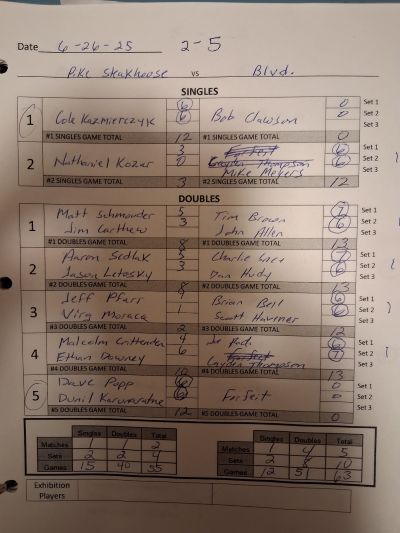 Date 6-26-25 2-5
Pike Steakhouse vs Blvd.
SINGLES
1 Cole Kazmierczyk 6 6 Bob Clawson 0 0 Set 1 Set 2 Set 3
#1 SINGLES GAME TOTAL 12 #1 SINGLES GAME TOTAL 0
2 Nathaniel Kozar 3 0 Mike Meyers 6 6 Set 1 Set 2 Set 3
#2 SINGLES GAME TOTAL 3 #2 SINGLES GAME TOTAL 12
DOUBLES
1 Matt Schmonder 5 Tim Brown 7 Set 1
Jim Carthew 3 John Allen 6 Set 2
Set 3
#1 DOUBLES GAME TOTAL 8 #1 DOUBLES GAME TOTAL 13
2 Aaron Sedlak 5 Charlie 7 Set 1
Jason Letosky 3 Dan Hudy 6 Set 2
Set 3
#2 DOUBLES GAME TOTAL 8 #2 DOUBLES GAME TOTAL 13
3 Jeff Pfarr 1 Brian Bell 6 Set 1
Virg Moraca 1 Scott Havener 6 Set 2
Set 3
#3 DOUBLES GAME TOTAL 2 #3 DOUBLES GAME TOTAL 12
4 Malcolm Crittenden 4 Joe 6 Set 1
Ethan Downey 6 Layden Thompson 7 Set 2
Set 3
#4 DOUBLES GAME TOTAL 10 #4 DOUBLES GAME TOTAL 13
5 Dave Popp 6 Forfeit 0 Set 1
Dunil Karunaratne 6 0 Set 2
Set 3
#5 DOUBLES GAME TOTAL 12 #5 DOUBLES GAME TOTAL 0
Singles Doubles Total Singles Doubles Total
Matches 1 1 2 Matches 1 4 5
Sets 2 2 4 Sets 2 8 10
Games 15 40 55 Games 12 51 63
Exhibition
Players